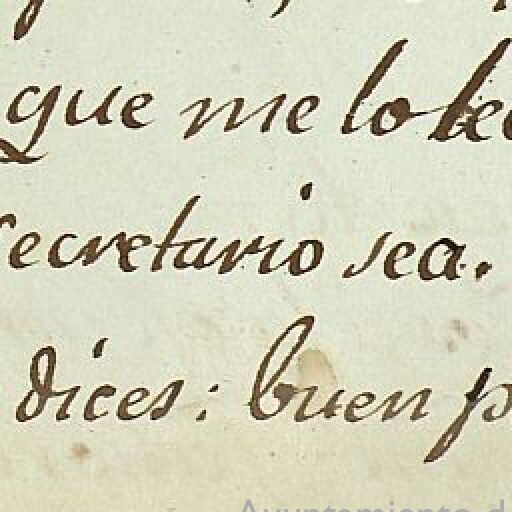 que me lo lee
secretario sea.
dices: buen p
Ayuntamiento d